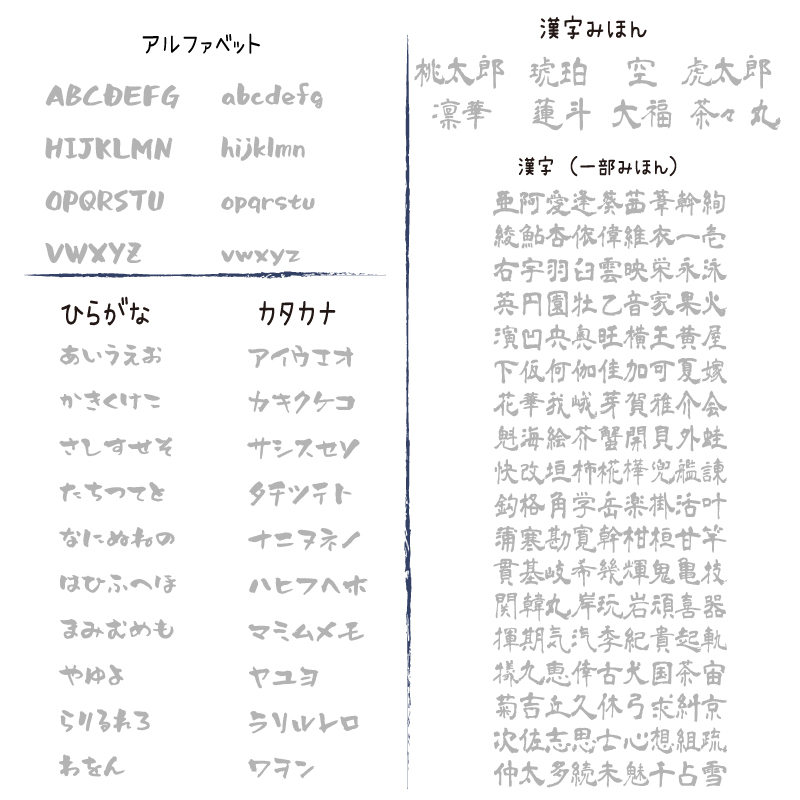 アルファベット
ABCDEFG abcdefg
HIJKLMN hijklmn
OPQRSTU opqrstu
VWXYZ vwxyz
ひらがな
あいうえお
かきくけこ
さしすせそ
たちつてと
なにぬねの
はひふへほ
まみむめも
やゆよ
らりるれろ
わをん
カタカナ
アイウエオ
カキクケコ
サシスセソ
タチツテト
ナニヌネノ
ハヒフヘホ
マミムメモ
ヤユヨ
ラリルレロ
ワヲン
漢字みほん
桃太郎 琥珀 空 虎太郎
凛華 蓮斗 大福 茶々丸
漢字（一部みほん）
亜阿愛逢葵茜葦幹絢
綾鮎杏依偉維衣一壱
右宇羽臼雲映栄永泳
英円園牡乙音家果火
濱凹央奥旺横王黄屋
下仮何伽佳加可夏嫁
花華我峨芽賀雅介会
魁海絵芥蟹開貝外蛙
快改垣柿椛樺兜艦諫
鈎格角学岳楽掛活叶
蒲寒勘寛幹柑桓甘竿
貫基岐希幾輝鬼亀技
関韓丸岸玩岩頑喜器
揮期気汽季紀貴起軌
犠九恵倖古犬国茶宙
菊吉丘久休弓求糾京
次佐志思士心想組疏
仲太多続未魅千占雪